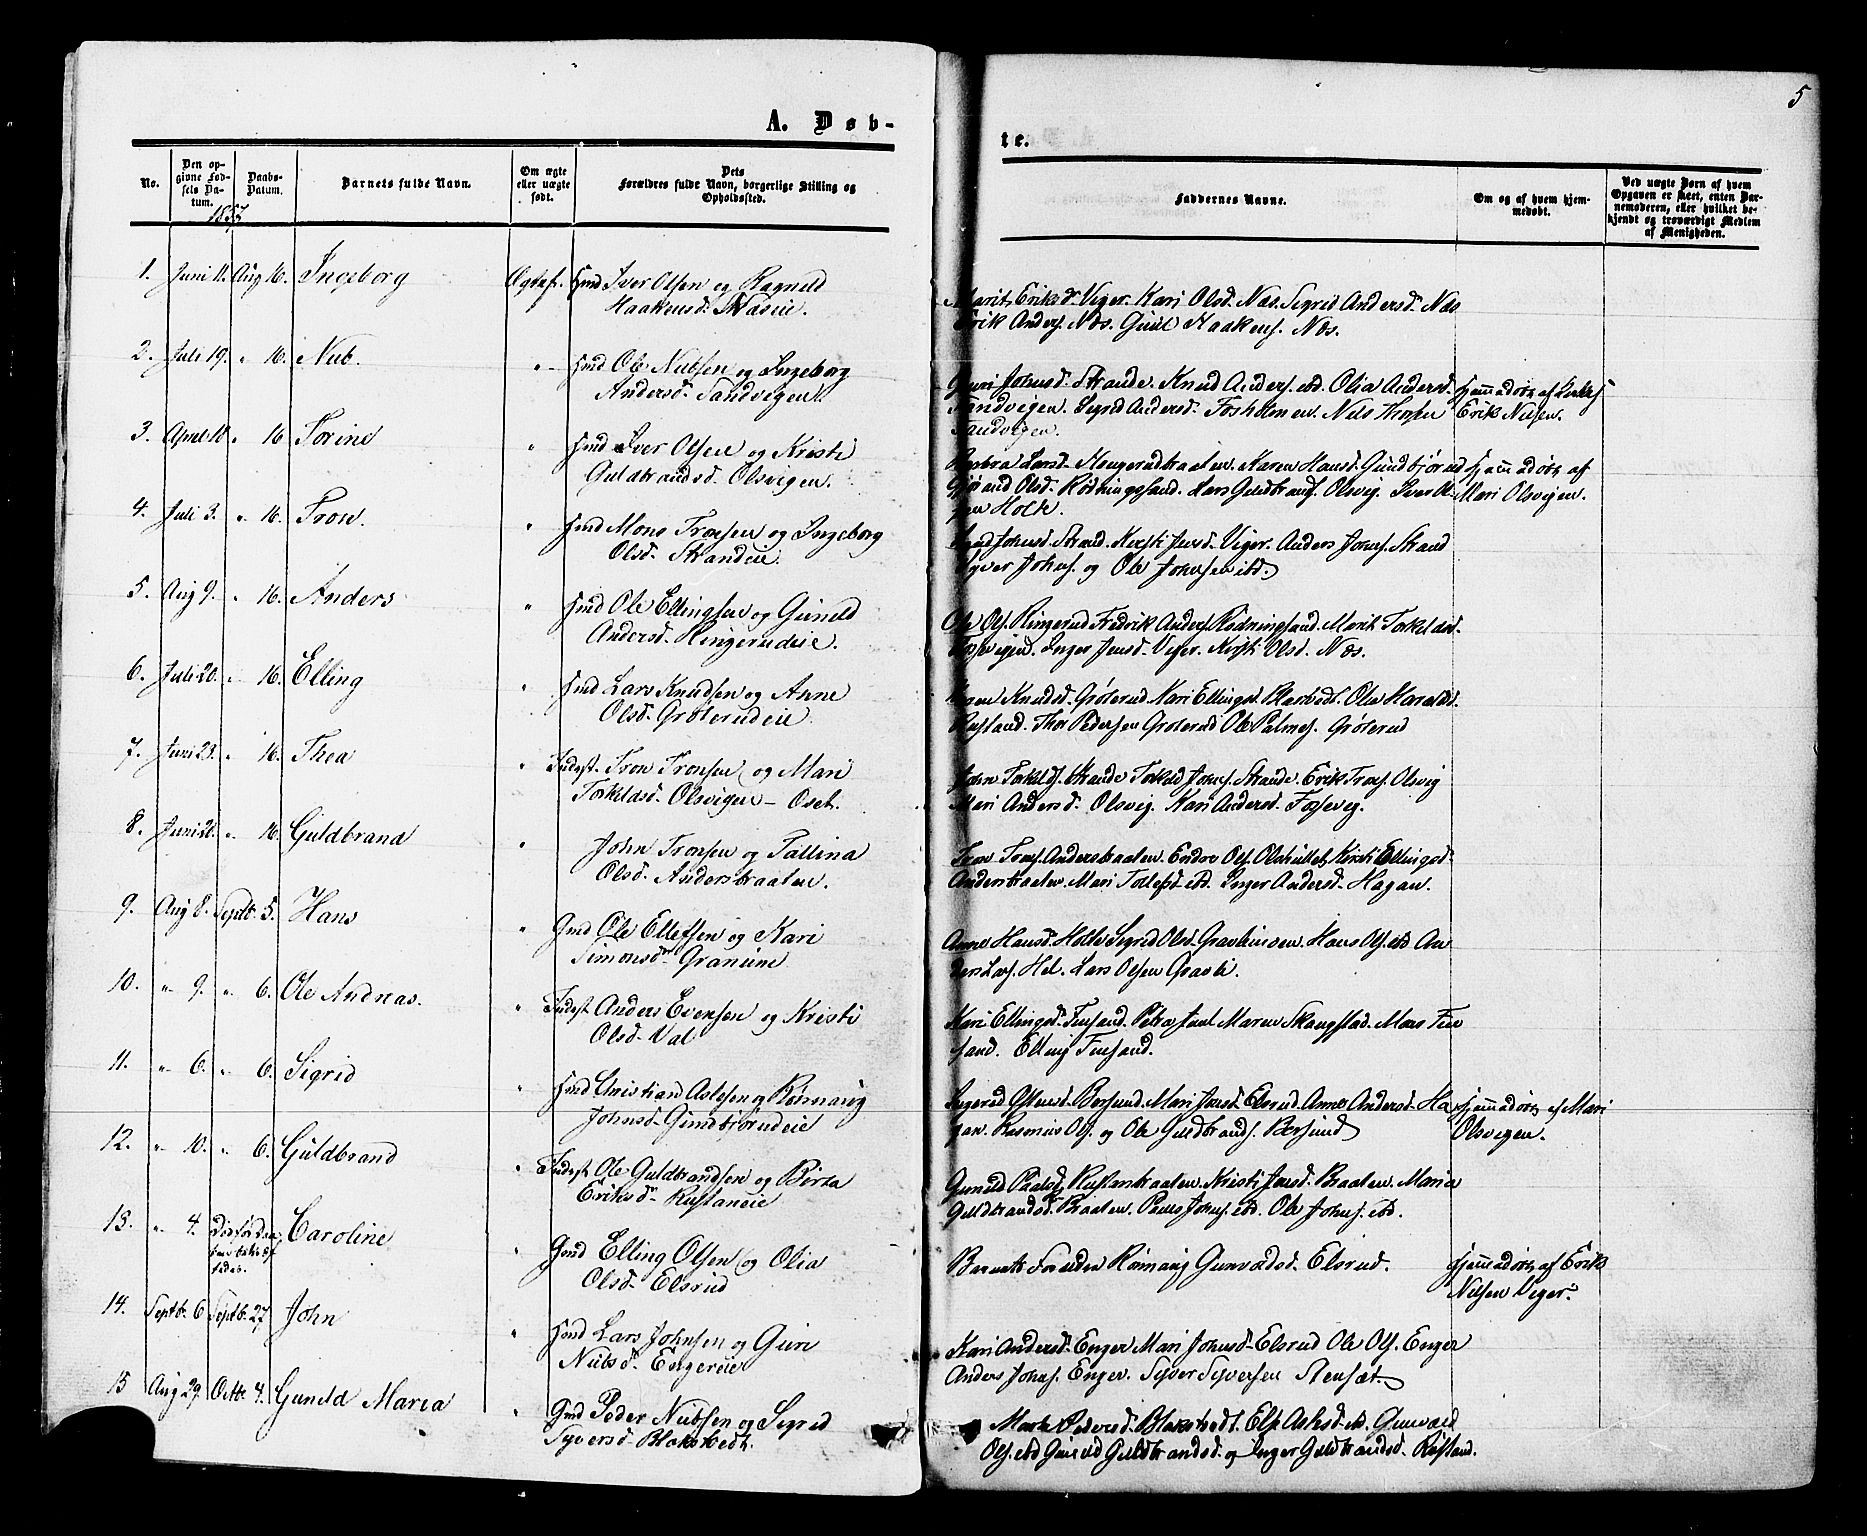 5
A. Døb-
te.
No.
Den op-
givne Fød-
sels Da-
tum.
Daabs-
Datum.
Barnets fulde Navn.
Om ægte
eller uægte
født.
Dets
Forældres fulde Navn, borgerlige Stilling og
Opholdssted.
Faddernes Navne.
Om og af hvem hjem-
medøbt.
Ved uægte Børn af hvem
Opgaven er skeet, enten Bar-
nemoderen, eller hvilket be-
kjendt og troværdigt Medlem
af Menigheden.
1857
1. Juni 11. Aug 16. Ingeborg Ægtef. Hmd Iver Olsen og Ragnild
Haakensd.
Marit Eriksd. Viger. Kari Olsd. Næs. Sigrid Andersd. Næs
Erik Anders. Næs. Haakens. Næs.
2. Juli 19. " 16. Nub. " Hmd Ole Nubsen og Ingeborg
Andersd. Sandvigen.
Guri Johnsd. Strande. Knud Anders. ibd. Olia Andersd. Hjemmedøbt af
Sandvigen. Sigrid Andersd. Fosholmen. Nils Erik Nilsen.
Sandvigen.
3. April 10 " 16 Torine " Hmd Iver Olsen og Kristi
Guldbrandsd. Olsvigen.
Barbra Larsd. Hougerudbraaten. Karen Hansd. Gundbjørud Hjemmedøbt af
Olsd. Rødningsand. Lars Guldbrands. Olsvig. Iver Ol- Mari Olsvigen.
sen Holte.
4. Juli 3. " 16. Tron. " Hmd Mons Tronsen og Ingeborg
Olsd. Strandeie.
Johnsd. Strand. Kristi Jensd. Viger. Anders Johns. Strand
Syver Johns. og Ole Johnsen ibd.
5. Aug 9. " 16. Anders " Hmd Ole Ellingsen og Gunild
Andersd. Ringerudeie.
Ole Ols. Ringerud Fredrik Anders. Rødningsand. Marit Torkelsd.
Inger Jensd. Viger. Kristi Olsd. Næs.
6. Juli 20. " 16. Elling " Hmd Lars Knudsen og Anne
Olsd. Grøterudeie
Knudsd. Grøterud Kari Ellingsd. Blakstedt. Ole Haralds.
Rustand. Thor Pedersen Grøterud Ole Palmes. Grøterud
7. Juni 23. " 16. Thea " Indest. Tron Tronsen og Mari
Torkildsd. Olsvigen – Oset.
John Torkilds. Strande Torkild Johns. Strande. Erik Trons. Olsvig
Mari Andersd. Olsvig. Kari Andersd. Fossevig.
8. Juni 21. " 16. Guldbrand " John Tronsen og Pallina
Olsd. Andersbraaten.
Tron Trons. Andersbraaten. Endre Ols. Kristi Ellingsd.
Andersbraaten. Mari Tollefsd. ibd. Inger Andersd. Hagan.
9. Aug 8. Septb. 5. Hans " Gmd Ole Ellefsen og Kari
Simonsd. Graneine
Anne Hansd. Holte Sigrid Olsd. Hans Ols. ibd An
ders Lars. Lars Olsen Gravli.
10. " 9. " 6. Ole Andreas. " Indest Anders Evensen og Kristi
Olsd. Val
Kari Ellingsd. Finsand. Petra Maren Skaugstad. Mons Fin
sand. Elling Finsand.
11. " 6. " 6. Sigrid " Hmd Christian Aslesen og Rømaug
Johnsd. Gundbjørudeie
Ingerid Bersund. Mari Jonsd. Elsrud. Anne Andersd. Ha Hjemmedøbt af Mari
gan. Rasmus Ols. og Ole Guldbrands. Bersund Olsvigen.
12. " 10. " 6. Guldbrand " Indest Ole Guldbrandsen og Birta
Eriksd. Rustaneie
Gunild Paalsd. Rustanbraaten. Kristi Jonsd. Braaten. Maria
Guldbrandsd. Braaten. Paul Johns. ibd. Ole Johns. ibd.
13. " 4. Caroline " Gmd Elling Olsen og Olia
Olsd. Elsrud
Barnets Rømaug Gunvaldsd. Elsrud. Hjemmedøbt af Erik
Nilsen Viger.
14. Septb. 6 Septb. 27 John " Hmd Lars Johnsen og Guri
Nubsd. Engereie
Kari Andersd. Enger Mari Johnsd. Elsrud Ole Ols. Enger
Anders Johns. Enger. Syver Syversen Stensæt.
15 Aug 29. Octb. 4. Gunild Maria " Gmd Peder Nubsen og Sigrid
Syversd. Blakstedt.
Marte Pedersd. Blakstedt. Else Aslesd. ibd. Gunvald
Ols. ibd Gunild Guldbrandsd. og Inger Guldbrandsd. Rustand.